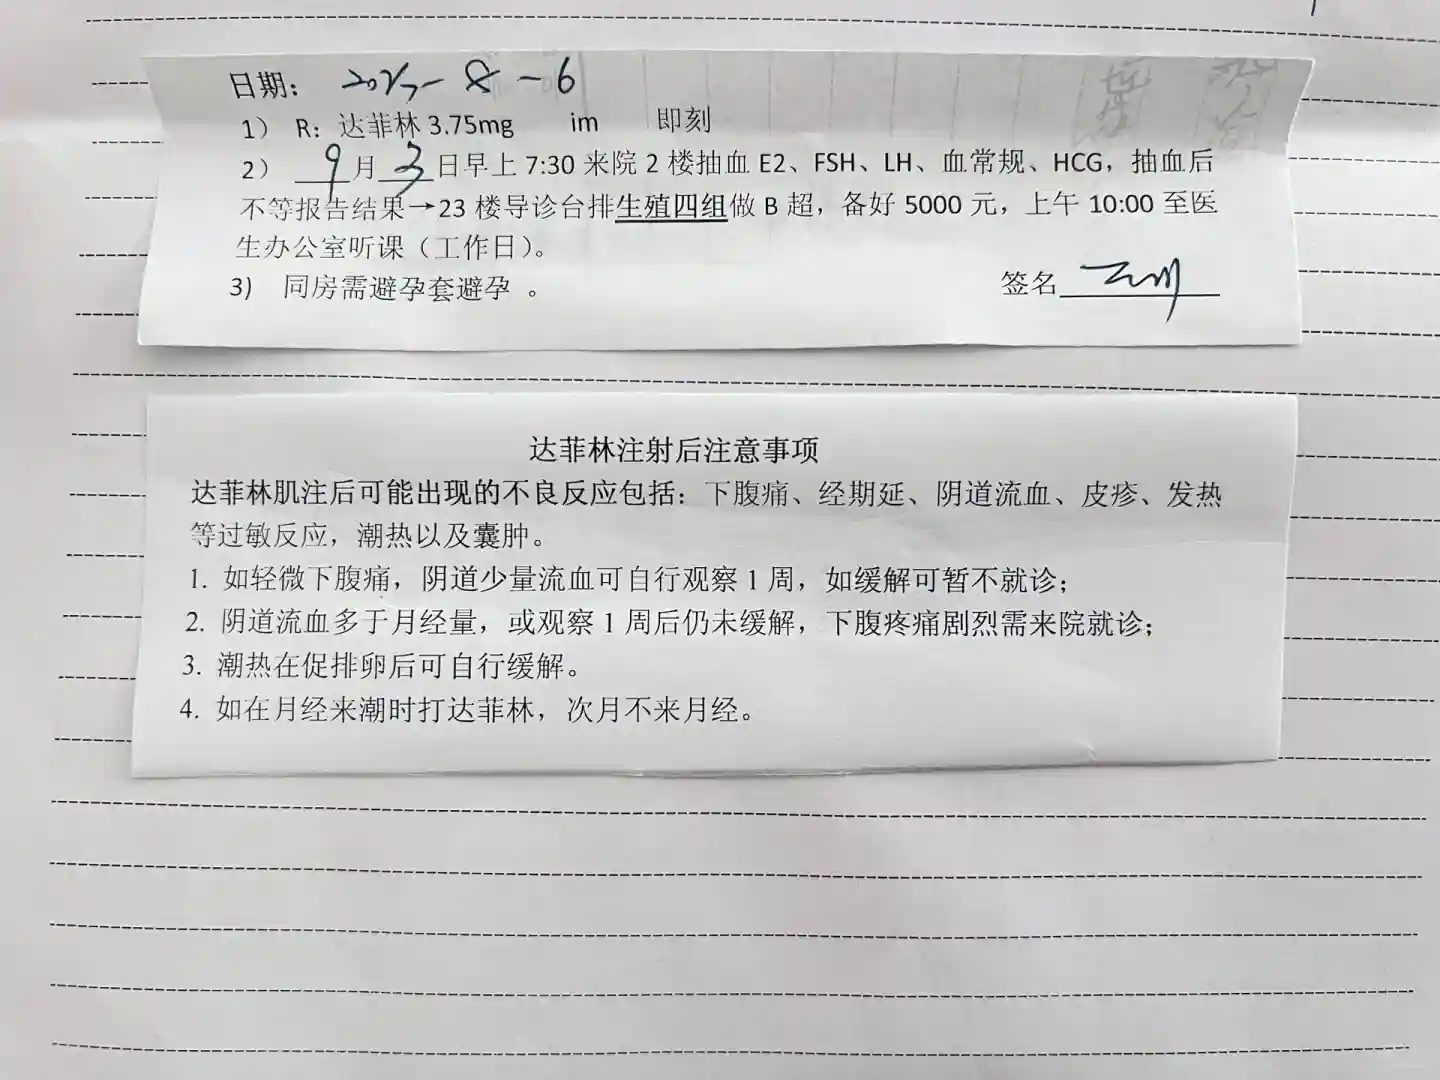 日期： - 8 - 6
1） R：达菲林 3.75mg im 即刻
2） 9月 3 日早上 7:30 来院 2 楼抽血 E2、FSH、LH、血常规、HCG，抽血后
不等报告结果→23 楼导诊台排生殖四组做 B 超，备好 5000 元，上午 10:00 至医
生办公室听课（工作日）。
3） 同房需避孕套避孕 。 签名
达菲林注射后注意事项
达菲林肌注后可能出现的不良反应包括：下腹痛、经期延、阴道流血、皮疹、发热
等过敏反应，潮热以及囊肿。
1. 如轻微下腹痛，阴道少量流血可自行观察 1 周，如缓解可暂不就诊；
2. 阴道流血多于月经量，或观察 1 周后仍未缓解，下腹疼痛剧烈需来院就诊；
3. 潮热在促排卵后可自行缓解。
4. 如在月经来潮时打达菲林，次月不来月经。